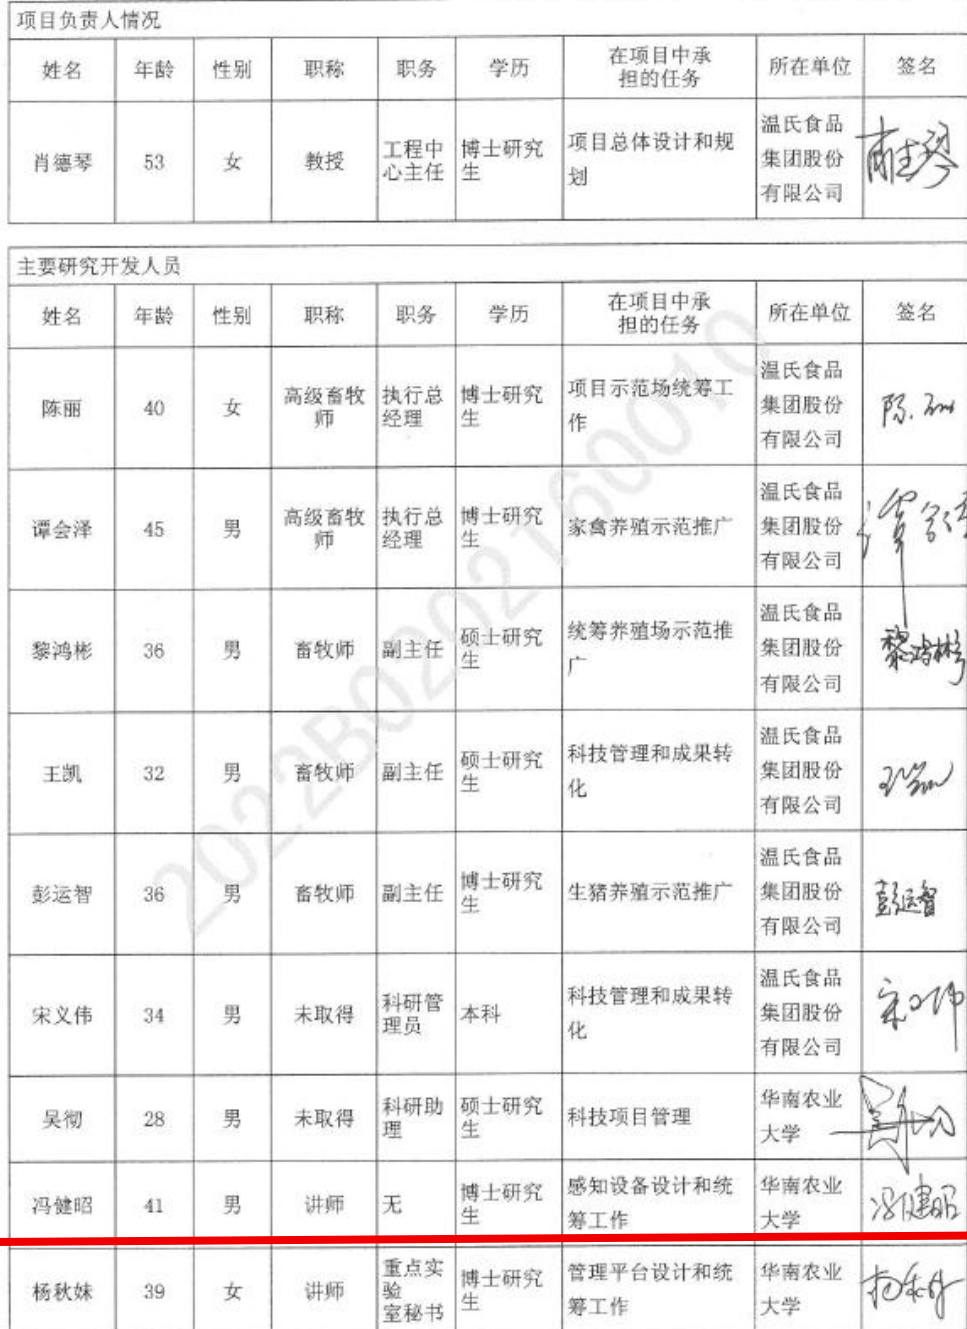 项目负责人情况
姓名 年龄 性别 职称 职务 学历 在项目中承担的任务 所在单位 签名
肖德琴 53 女 教授 工程中心主任 博士研究生 项目总体设计和规划 温氏食品集团股份有限公司 肖德琴
主要研究开发人员
姓名 年龄 性别 职称 职务 学历 在项目中承担的任务 所在单位 签名
陈丽 40 女 高级畜牧师 执行总经理 博士研究生 项目示范场统筹工作 温氏食品集团股份有限公司 陈丽
谭会泽 45 男 高级畜牧师 执行总经理 博士研究生 家禽养殖示范推广 温氏食品集团股份有限公司 谭会泽
黎鸿彬 36 男 畜牧师 副主任 硕士研究生 统筹养殖场示范推广 温氏食品集团股份有限公司 黎鸿彬
王凯 32 男 畜牧师 副主任 硕士研究生 科技管理和成果转化 温氏食品集团股份有限公司 王凯
彭运智 36 男 畜牧师 副主任 博士研究生 生猪养殖示范推广 温氏食品集团股份有限公司 彭运智
宋义伟 34 男 未取得 科研管理员 本科 科技管理和成果转化 温氏食品集团股份有限公司 宋义伟
吴彻 28 男 未取得 科研助理 硕士研究生 科技项目管理 华南农业大学
冯健昭 41 男 讲师 无 博士研究生 感知设备设计和统筹工作 华南农业大学 冯健昭
杨秋妹 39 女 讲师 重点实验室秘书 博士研究生 管理平台设计和统筹工作 华南农业大学 杨秋妹
2022B0202160010